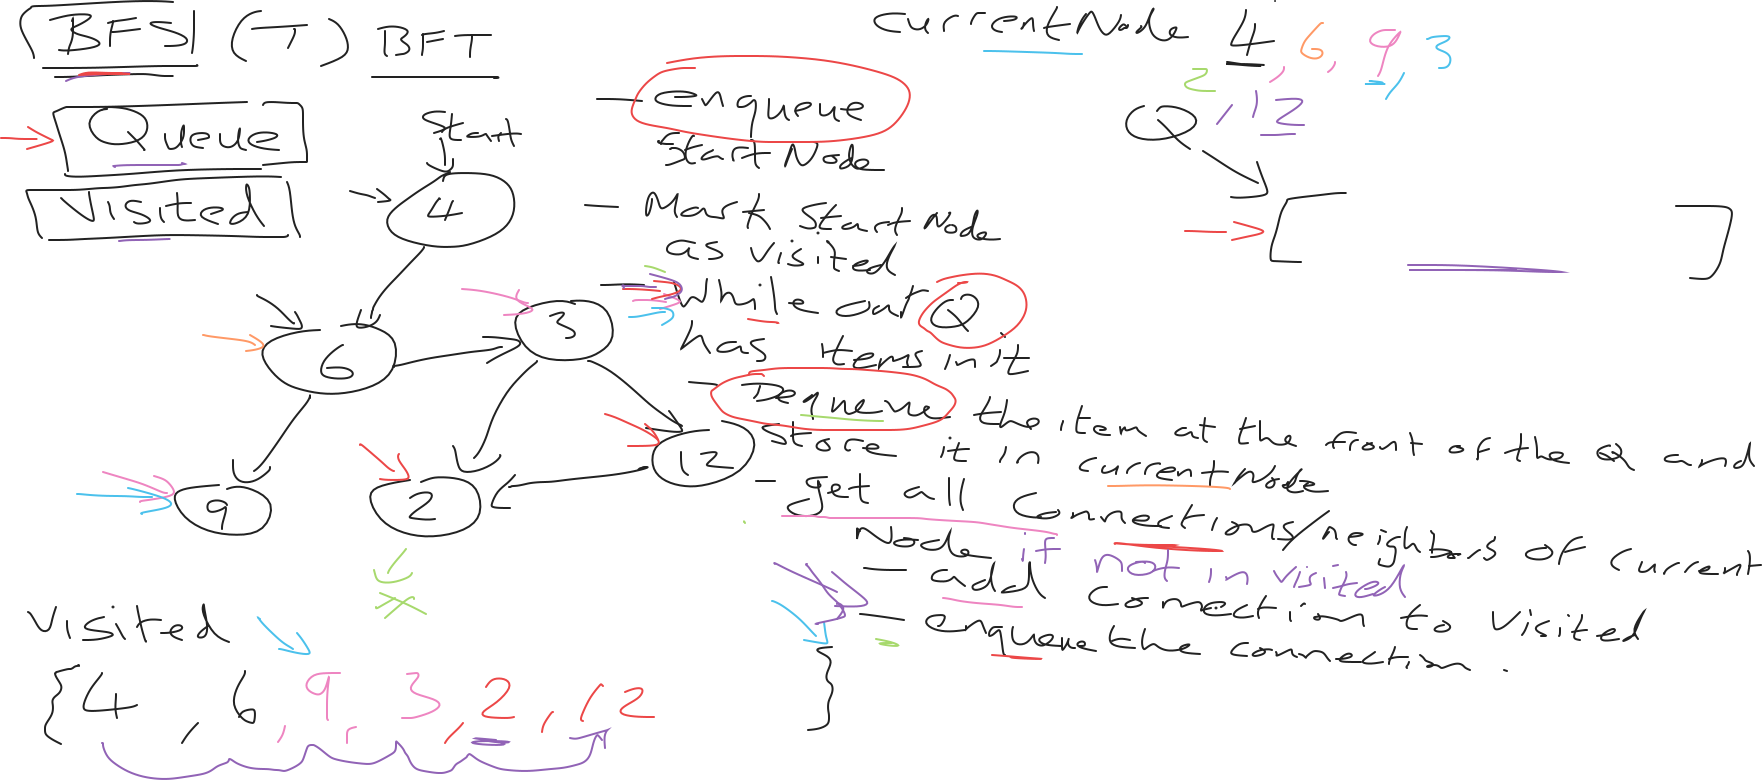 BFS (T) BFT
Queue
Visited
Start
4
6
3
9
2
12
- enqueue
Start Node
- Mark Start Node
as visited
- While our Q
has items in it
- Dequeue the item at the front of the Q and
store it in currentNode
- get all connections/neighbors of current
Node if not in visited
- add connection to visited
- enqueue the connection.
currentNode 4, 6, 9, 3
2, 12
Q
[ ]
Visited
{4, 6, 9, 3, 2, 12 }